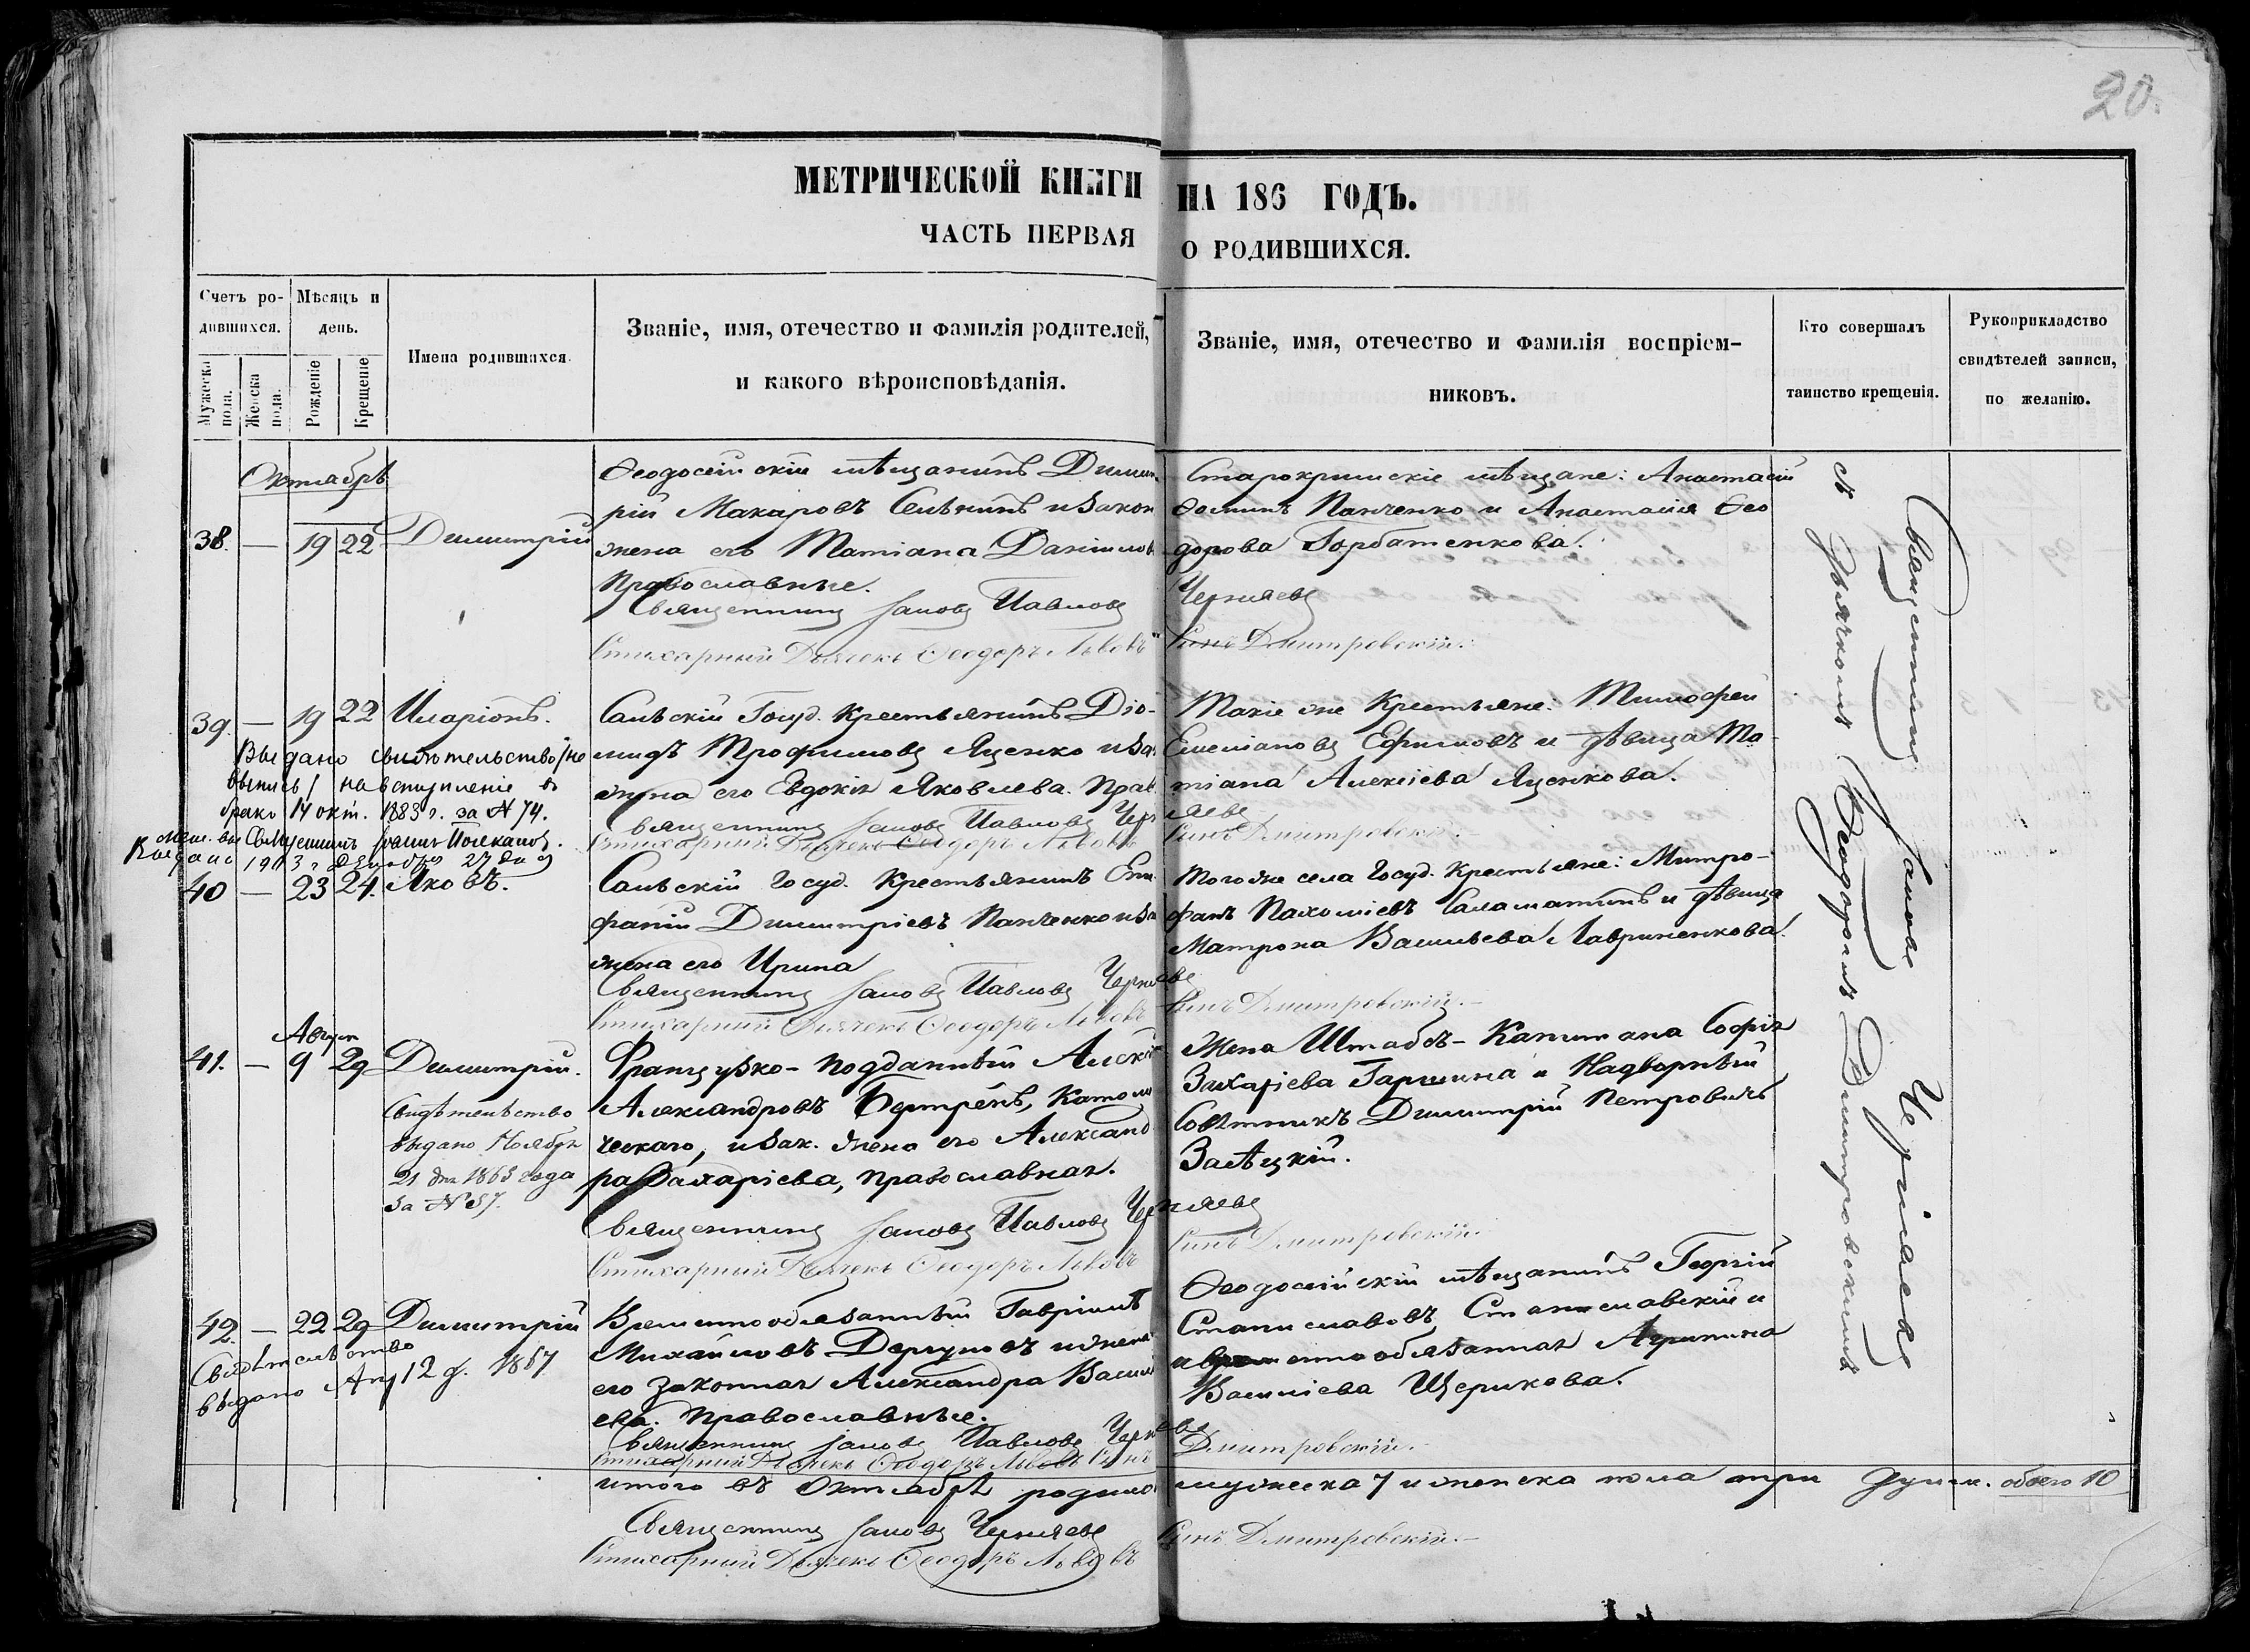 20.
МЕТРИЧЕСКОЙ КНИГИ НА 186 ГОДЪ.
ЧАСТЬ ПЕРВАЯ О РОДИВШИХСЯ.
Счетъ родившихся.
Мужеска пола.
Женска пола.
Мѣсяцъ и день.
Рожденіе
Крещеніе
Имена родившихся.
Званіе, имя, отечество и фамилія родителей,
и какого вѣроисповѣданія.
Званіе, имя, отечество и фамилія воспріем-
никовъ.
Кто совершалъ
таинство крещенія.
Рукоприкладство
свидѣтелей записи,
по желанію.
Октябрь
38. — 19 22 Димитрій
Ѳеодосійскій мѣщанинъ Димит
рій Макаровъ и закон
жена его Татіана Даніилов
Православные.
Священникъ Іаковъ Павловъ Черняевъ
Стихарный Дьячекъ Ѳеодоръ Львовъ Сынъ Дмитровскій.
Старокрымскіе мѣщане: Анастасій
Ѳоминъ Панченко и Анастасія Ѳео
дорова Горбатенкова.
39. — 19 22 Иларіонъ.
Выдано свидѣтельство /не
выпись/ на вступленіе въ
бракъ 14 окт. 1883 г. за № 74.
Сальскій Госуд. Крестьянинъ Діо-
мидъ Трофимовъ Яценко и за
жена его Евдокія Яковлева. Прав.
Священникъ Іаковъ Павловъ Черняевъ
Стихарный Дьячекъ Ѳеодоръ Львовъ Сынъ Дмитровскій.
Такіе же Крестьяне: Тимофей
Емеліановъ Ефимовъ и дѣвица Та-
тіана Алексіева Яценкова.
40 — 23 24. Яковъ.
Сальскій Госуд. Крестьянинъ Епи
фаній Димитріевъ Панченко и за
жена его Ирина
Священникъ Іаковъ Павловъ Черняевъ
Стихарный Дьячекъ Ѳеодоръ Львовъ Сынъ Дмитровскій.
Тогоже села Госуд. Крестьяне: Митро-
фанъ Пахоміевъ Саламатинъ и дѣвица
Матрона Васильева Лавриненкова.
Август
41. — 9 29 Димитрій.
Свидѣтельство
выдано Ноября
21 дня 1863 года
за № 57.
Французко-подданный Алекс
Александровъ Католи
ческаго, и зак. жена его Александ
ра Захаріева, православная.
Священникъ Іаковъ Павловъ Черняевъ
Стихарный Дьячекъ Ѳеодоръ Львовъ Сынъ Дмитровскій.
Жена Штабсъ-Капитана Софія
Захаріева Гаршина и Надворный
Совѣтникъ Димитрій Петровичъ
42. — 22 29 Димитрій
Свидѣтельство
выдано Апр 12 д. 1867
Временнообязанный Гавріилъ
Михайловъ Дергуновъ и жена
его законная Александра Васил
ева. Православные.
Священникъ Іаковъ Павловъ Черняевъ
Стихарный Дьячекъ Ѳеодоръ Львовъ Сынъ Дмитровскій.
Ѳеодосійскій мѣщанинъ Георгій
Станиславовъ Станиславскій и
временнообязанная Агрипина
Василіева Щерикова.
Священникъ Іаковъ Черняевъ
съ Дьячкомъ Ѳеодоромъ Дмитровскимъ
итого въ Октябрѣ родило мужеска 7 и женска пола три души. обоего 10
Священникъ Іаковъ Черняевъ
Стихарный Дьячекъ Ѳеодоръ Львовъ Сынъ Дмитровскій.